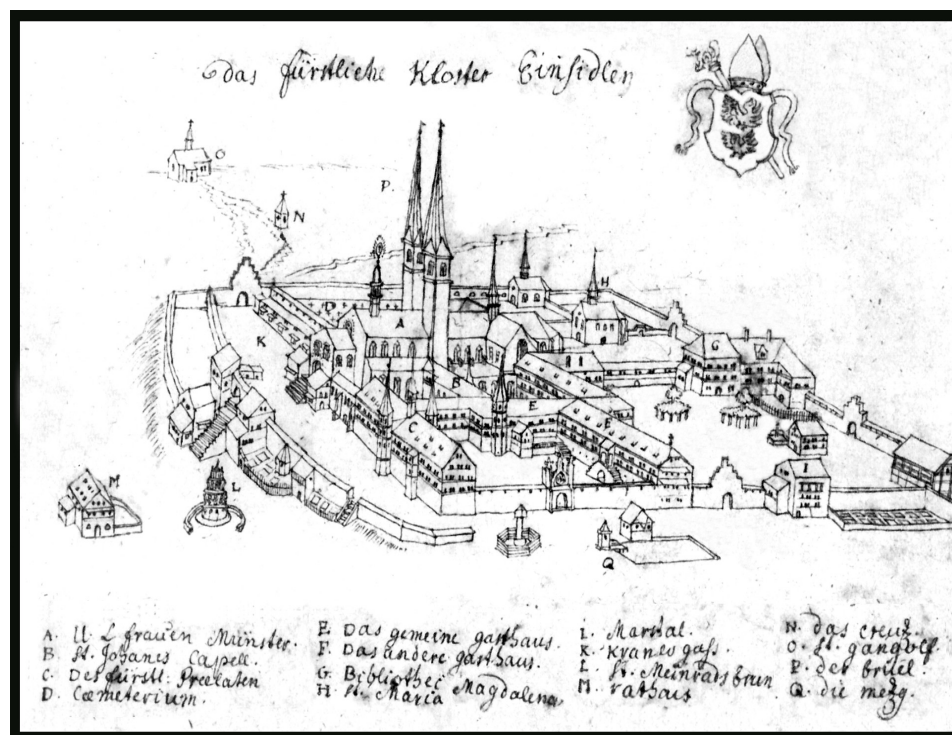 das fürstliche Kloster Einsidlen
O
N
P.
H
D
A
K
G
B
E
C
F
I
M
L
Q
A. U L frauen Münster.
B St. Johanes Capell.
C. Der fürstl. Prælaten
D. Cæmeterium.
E Das gemeine gasthaus.
F. Das andere gasthaus.
G. Bibliothec
H. St. Maria Magdalena.
I. Marstal.
K. gass.
L St. Meinrads brun
M rathaus
N. das creuz.
O. St. gangolf.
P. der brüel.
Q. die mezg.